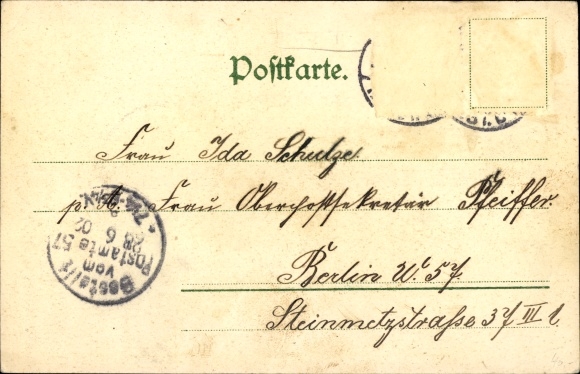 Postkarte.
Frau Ida Schulze
p. A. Frau Oberpostsekretär Pfeiffer.
Berlin W. 57
Steinmetzstraße 37 III l.
Bestellt
vom
Postamte 57
28 6 02